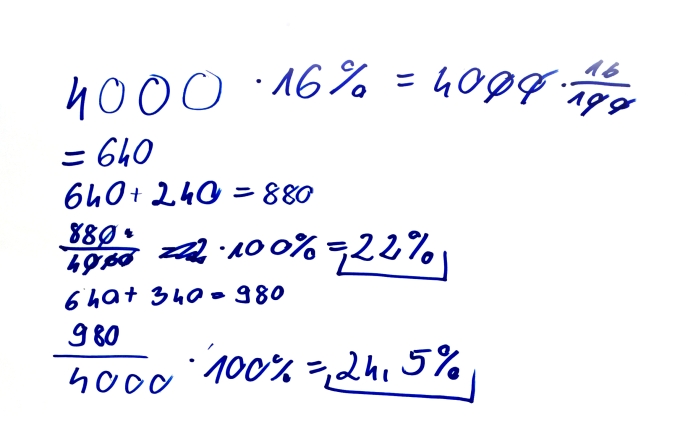 4000 · 16% = 4000 · 16/100
= 640
640 + 240 = 880
880/4000 · 100% = 22%
640 + 340 = 980
980/4000 · 100% = 24,5%